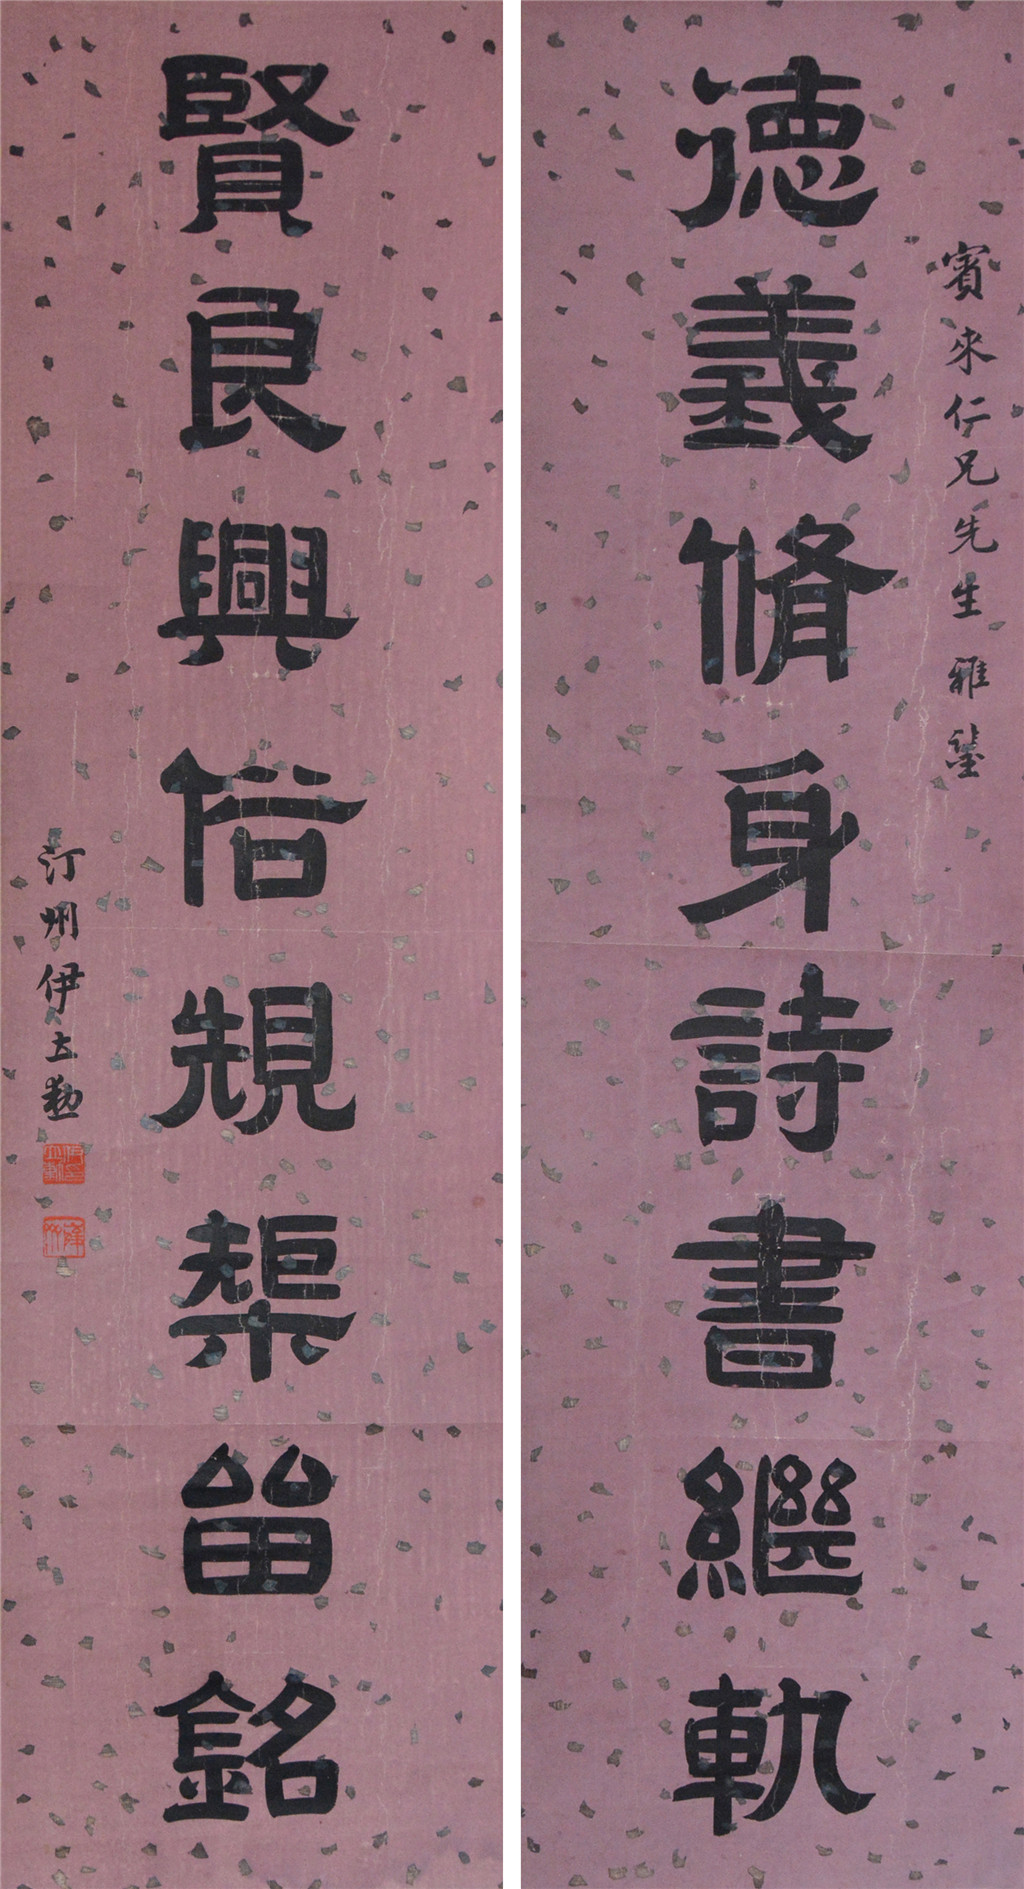 賓來仁兄先生雅鑒
德義脩身詩書繼軌
賢良興俗規榘畱銘
汀州伊立勳